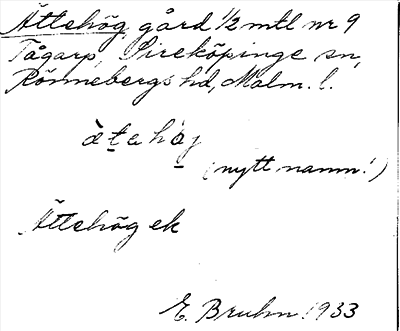 Ättehög gård 1/2 mtl nr 9
Tågarp, Sireköpinge sn,
Rönnebergs hd, Malm. l.
(nytt namn!)
Ättehög ek
E. Bruhn 1933